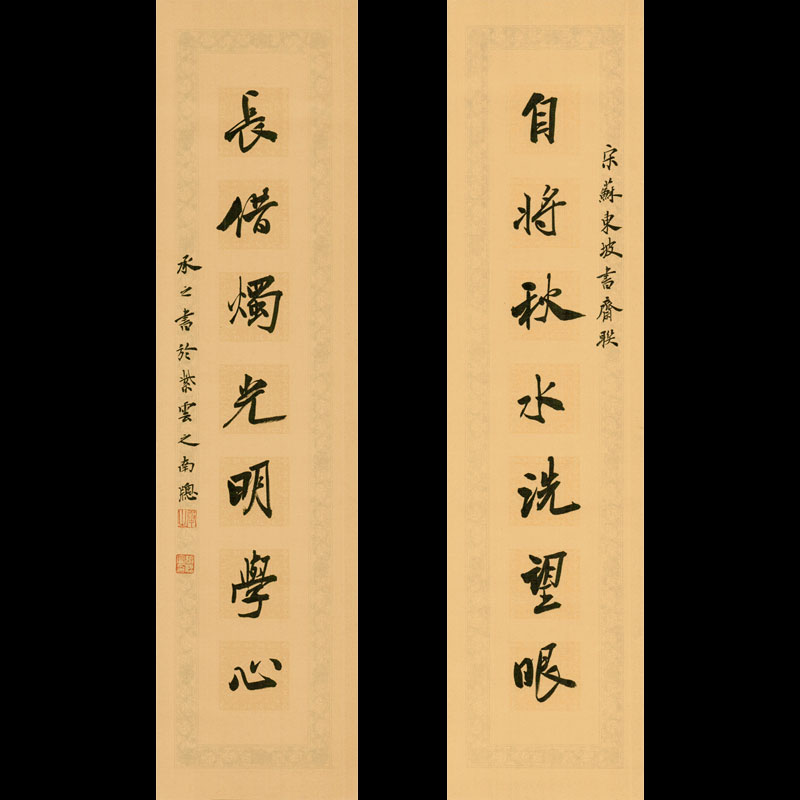 宋蘇東坡書齋联
自將秋水洗望眼
長借燭光明學心
承之書於紫雲之南牕